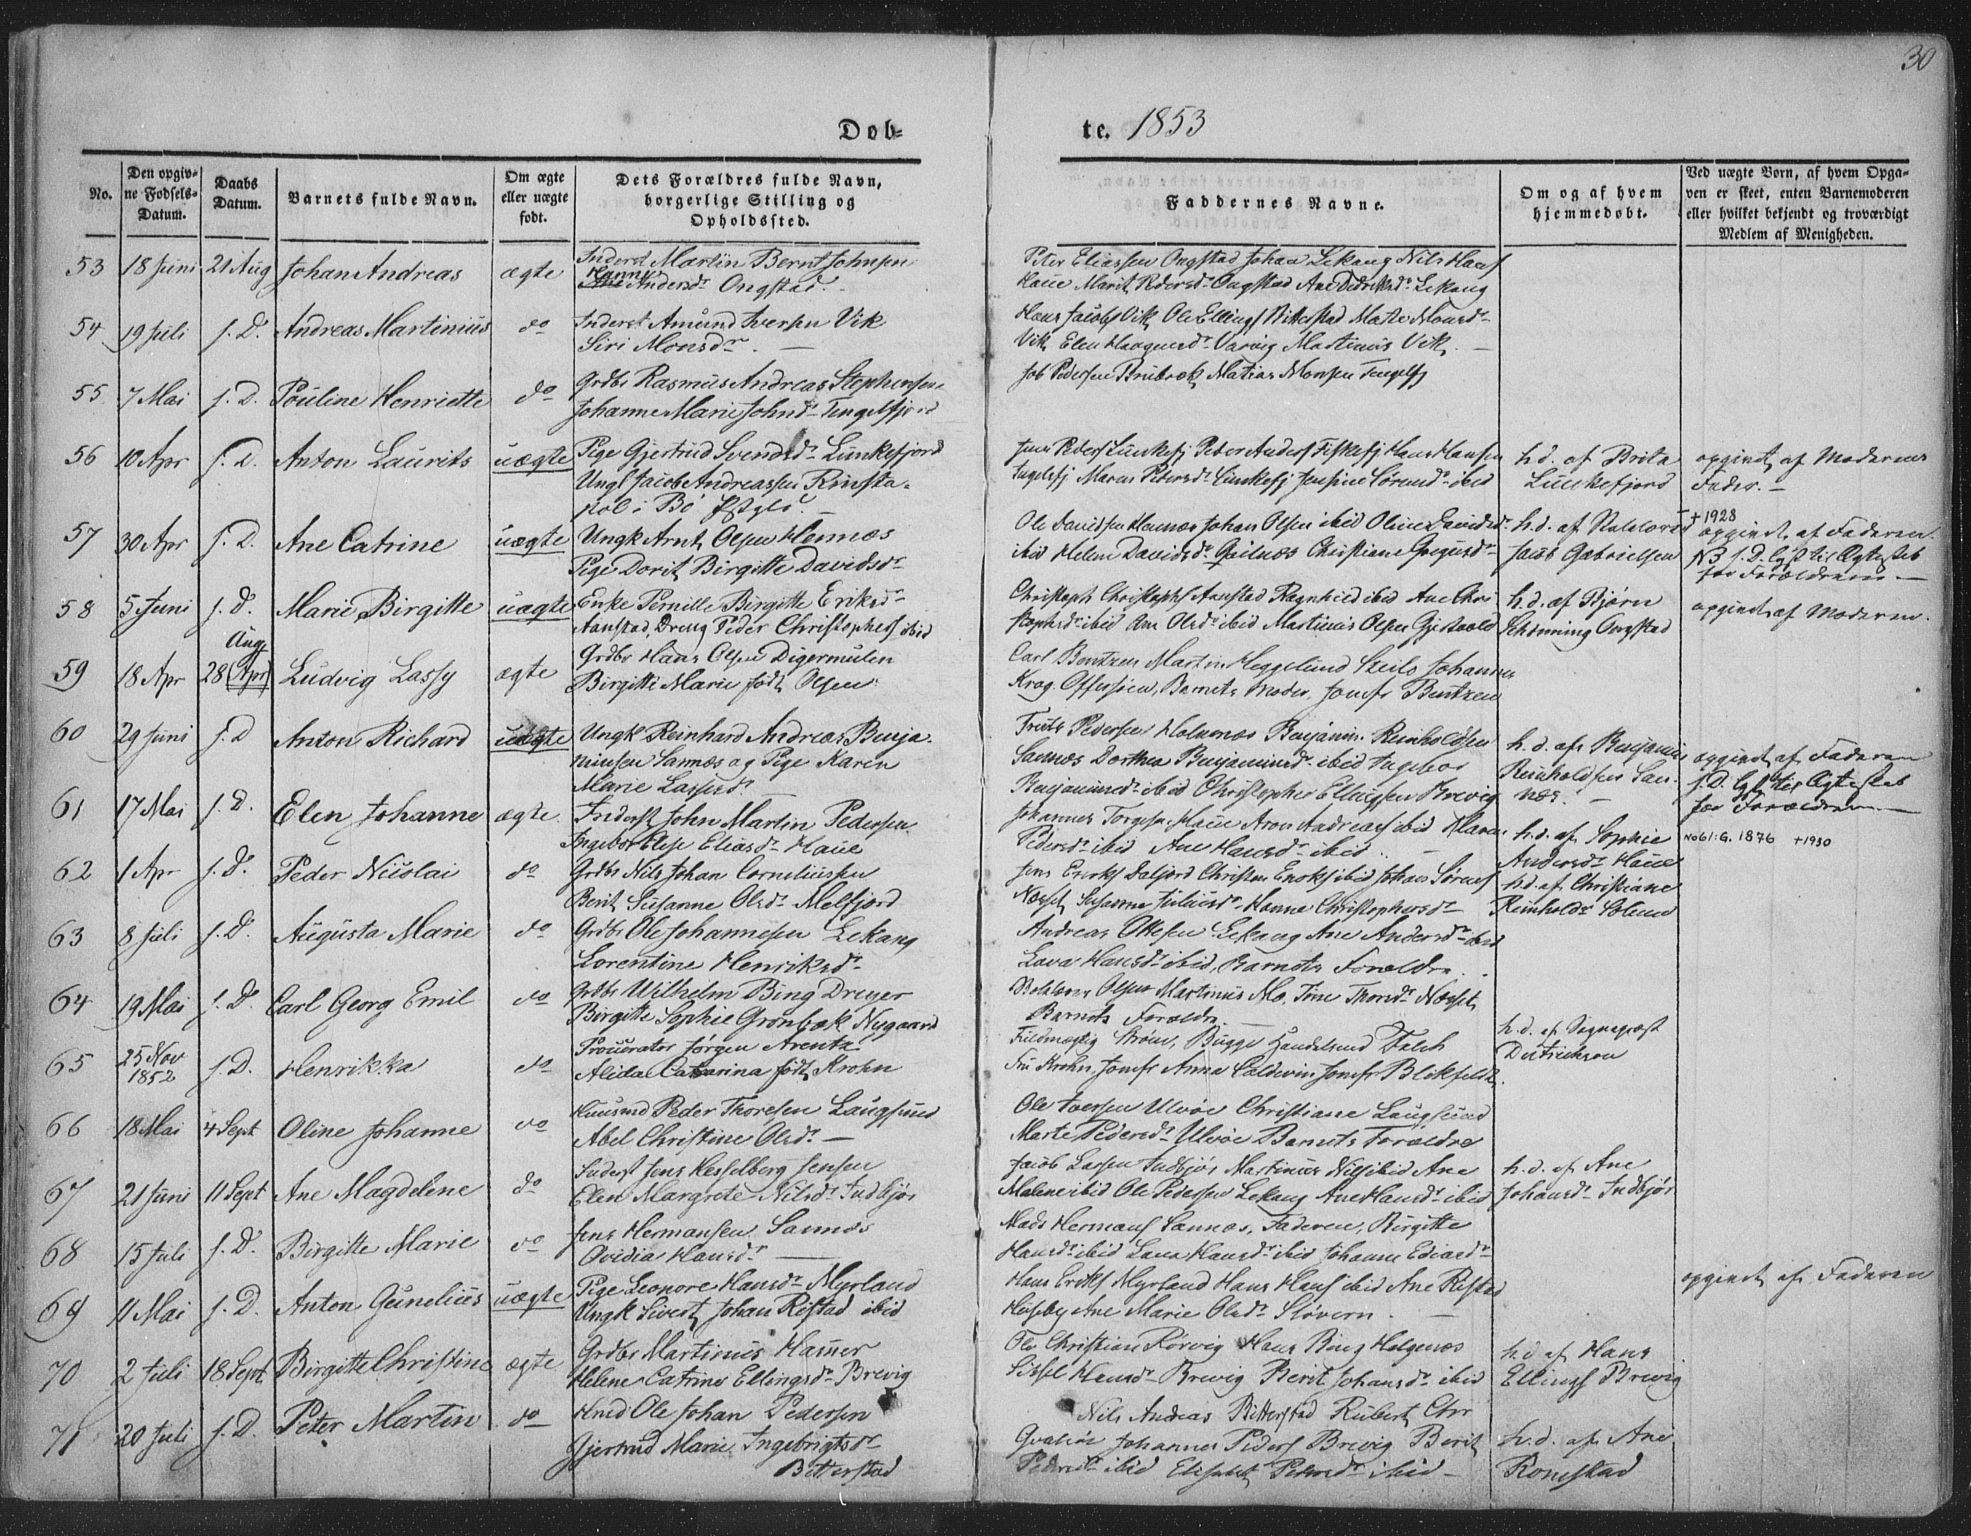 30
Døb-
te. 1853
No.
Den opgiv-
ne Fødsels-
Datum.
Daabs
Datum.
Barnets fulde Navn.
Om ægte
eller uægte
født.
Dets Forældres fulde Navn,
borgerlige Stilling og
Opholdssted.
Faddernes Navne.
Om og af hvem
hjemmedøbt.
Ved uægte Børn, af hvem Opga-
ven er skeet, enten Barnemoderen
eller hvilket bekjendt og troværdigt
Medlem af Menigheden.
53 18 Juni 21 Aug Johan Andreas ægte
Inderst Martin Bernt Johnsen
Hanne Andersdr Ongstad.
Peter Eliassen Ongstad Johan Lekang Nils Hansf
Haue Marit Pedersdr Ongstad Ane Didriksdr Lekang
54 19 Juli s. D. Andreas Martinius do
Inderst Amund Iversen Vik
Siri Monsdr
Hans Jacobs Vik Ole Ellingf Bitterstad Mette Monsdr
Vik Elen Haagensdr Varvig Martinus Vik
55 7 Mai s. D. Pouline Henriette do
Grdbr Rasmus Andreas Stephensen
Johanne Marie Johnsdr Tengelfjord
Job Pedersen Brubræk Matias Monsen Tengelfj
56 10 Apr s. D. Anton Laurits uægte
Pige Gjertrud Svendsdr Lunkefjord
Ungk Jacob Andreassen Rinsta-
pol i Bø Præstgld.
Jens Pedersf Lunkefj Peter Andersf Fiskefj Hans Hansen
Ingelsfj Maren Pedersdr Lunkefj Jensine Sørensdr ibid
h. d. af Brita
Lunkefjord
opgivet af Moderens
Fader. —
57 30 Apr s. D. Ane Catrine uægte
Ungk Arnt Olsen Hennæs
Pige Dorit Birgitte Davidsdr
Ole Davidsen Hennæs Johan Olsen ibid Oline Davidsdr
ibid Helene Davidsdr Christiane Gregusdr
h. d. af
Jacob Gabrielsen
+ 1928
opgivet af Faderen.
NB s. D. lyst til Ægteskab
for Forældrene. —
58 5 Juni s. D. Marie Birgitte uægte
Enke Pernille Birgitte Eriksdr
Aanstad, Dreng Peder Christophersf ibid
Christoph Christophf Aanstad Ragnhild ibid Ane Chri
stophsdr ibid Ane Olsdr ibid Martinus Olsen Gjestvold
h. d. af Bjørn
Schønning Ongstad
opgivet af Moderen.
Aug
59 18 Apr 28 (Apr) Ludvig Lassy ægte
Grdbr Hans Olsen Digermulen
Birgitte Marie født Olsen
Carl Bentzen Martin Heggelund Johannes
Krog Offersøen, Barnets Moder, Jomfr Bentzen
60 29 Juni s. D Anton Richard uægte
Ungk Reinhard Andreas Benja-
minsen Sannæs og Pige Karen
Marie Larsdr
Truts Pedersen Holmenæs Benjamin Reinholdsen
Sannæs Dorthea Benjaminsdr ibid Ingebor
Benjaminsdr ibid Christopher Ellingsen Brevig
h. d. af Benjamin
Reinholdsen San-
næs. —
opgivet af Faderen
s. D. lyst til Ægteskab
for Forældrene. —
61 17 Mai s. D. Elen Johanne ægte
Inderst John Martin Pedersen
Ingebor Olise Eliasdr Haue
Johannes Torgesen Haue Aron Andreasf ibid Maren
Pedersdr ibid Ane Hansdr ibid
h. d. af Sophie
Andersdr Haue
No 61: G. 1876 +1930
62 1 Apr s. D. Peder Nicolai do
Grdbr Nils Johan Corneliussen
Berit Susanne Olsdr Melfjord
Jens Enoksf Dalfjord Christen Enoksf ibid Johan Sørensf
Næsset Susanne Juliusdr Hanne Christophersdr
h. d. af Christiane
Reinholdsdr Solem
63 8 Juli s. D. Augusta Marie do
Grdbr Ole Johannesen Lekang
Lorentine Henriksdr
Andreas Ottesen Lekang Ane Andersdr ibid
Lava Hansdr ibid, Barnets Forældre.
64 19 Mai s. D. Carl Georg Emil do
Grdbr Wilhelm Bing Dreyer
Birgitte Sophie Grønbæk Nygaard
Olsen Martinus Mo, Tine Thorsdr Næsset
Barnets Forældre
65 25 Nov
1852 s. D. Henrikka do
Procurator Jørgen Arentz
Alida Catharina født Krohn
Fuldmægtig Strøm, Bugge Handelsmd Falch
Fru Krohn Jomfr Anna Jomfr Blekfeldt.
h. d. af Sognepræst
Dietrichson
66 18 Mai 4 Sept Oline Johanne do
Huusmd Peder Thoresen Langsund
Abel Christine Olsdr —
Ole Iversen Ulvøe Christiane Langsund
Marte Pedersdr Ulvøe Barnets Forældre
67 21 Juni 11 Sept Ane Magdelene do
Inderst Jens Hesselberg Jensen
Elen Margrete Nilsdr Indbjør
Jacob Larsen Indbjør Martinus Nilsf ibid Ane
Malene ibid Ole Pedersen Lekang Ane Hansdr ibid
h. d. af Ane
Johansdr Indbjør
68 15 Juli s. D. Birgitte Marie do
Jens Hermansen Sannæs
Ovidia Hansdr
Mads Hermansf Sannæs, Faderen, Birgitte
Hansdr ibid Lava Hansdr ibid Johanne Edvardsdr
69 11 Mai s. D. Anton Gunelius uægte
Pige Leonore Hansdr Myrland
Ungk Sivert Johan Ristad ibid
Hans Eriksf Myrland Hans Hansf ibid Ane Ristad
Husby Ane Marie Olsdr Støvern
opgivet af Faderen
70 2 Juli 18 Sept Birgitte Christine ægte
Grdbr Martinus Hamer
Helene Catrine Ellingsdr Brevig
Ole Christian Rørvig Hans Bing Helgenæs
Sissel Hansdr Brevig Berit Johansdr ibid
h. d. af Hans
Ellingsf Brevig
71 20 Juli s. D. Peter Martin do
Hmd Ole Johan Pedersen
Gjertrud Marie Ingebrigtsdr
Bitterstad
Nils Andreas Bitterstad Rubert Chr
Johannes Pedersf Brevig Berit
Pedersdr ibid Elisabet Pedersdr ibid
h. d. af Ane
Romstad